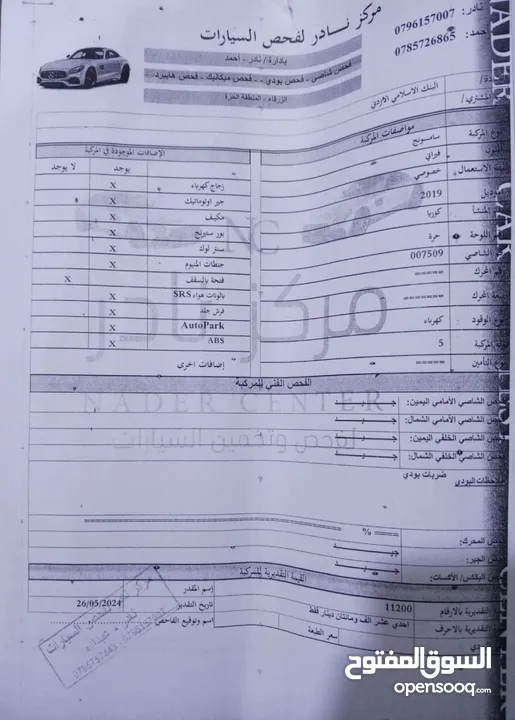 مركز نادر لفحص السيارات
بإدارة / نادر - أحمد
فحص شاصي - فحص بودي - فحص ميكانيك - فحص هايبرد
الزرقاء - المنطقة الحرة
نادر: 0796157007
أحمد: 0785726865
البنك الاسلامي الاردني
مواصفات المركبة
سامسونج
فيراني
الاستعمال خصوصي
2019
المنشأ كوريا
اللوحة حرة
الشاصي 007509
المحرك =====
المحرك ======
الوقود كهرباء
المركبة 5
التأمين =====
الإضافات الموجودة في المركبة
يوجد لا يوجد
زجاج كهرباء X
جير اوتوماتيك X
مكيف X
بور ستيرنج X
سنتر لوك X
جنطات المنيوم X
فتحة بالسقف X
بالونات هواء SRS X
فرش جلد X
AutoPark X
ABS X
إضافات اخرى
NC
مركز نادر
NADER CENTER
لفحص وتخمين السيارات
الفحص الفني للمركبة
الشاصي الأمامي اليمين: جيد
الشاصي الأمامي الشمال: جيد
الشاصي الخلفي اليمين: جيد
الشاصي الخلفي الشمال: جيد
البودي ضربات بودي
المحرك: ==== %
الجير: جيد
البكس/ الأكسات: جيد
القيمة التقديرية للمركبة
التقديرية بالأرقام 11200
التقديرية بالاحرف احدي عشر الف ومائتان دينار فقط
سعر الطبعة
إسم المقدر
تاريخ التقدير 26/05/2024
اسم وتوقيع الفاحص
السوق المفتوح
opensooq.com